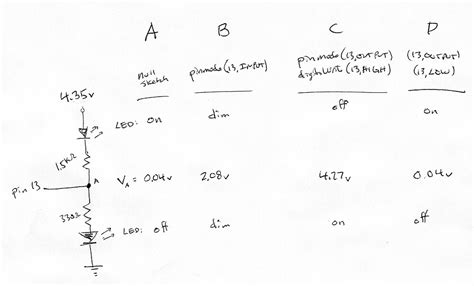 A B C D
null sketch pinmode(13,INPUT) pinmode(13,OUTPUT) (13,OUTPUT)
digitalWrite(13,HIGH) (13,LOW)
4.35v
LED: on dim off on
1.5kΩ
pin 13 A VA = 0.04v 2.08v 4.27v 0.04v
330Ω
LED: off dim on off